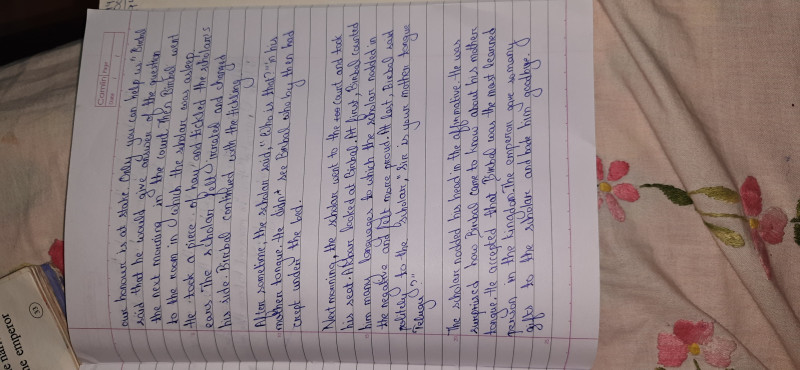 our honour is at stake. Only you can help us." Birbal
said that he would give answer of the question
the next morning in the court. Then Birbal went
to the room in which the scholar was asleep.
He took a piece of hay and tickled the scholar's
ears. The scholar felt irritated and changed
his side. Birbal continued with the tickling
After sometime, the scholar said, "Echo is that?" in his
mother tongue. He didn't see Birbal who by then had
crept under the bed.
Next morning, the scholar went to the court and took
his seat. Akbar looked at Birbal. At first, Birbal counted
him many languages to which the scholar nodded in
the negative and felt more proud. At last, Birbal said
politely to the scholar, "Sir is your mother tongue
Telugu?"
The scholar nodded his head in the affirmative. He was
surprised how Birbal came to know about his mother
tongue. He accepted that Birbal was the most learned
person in the kingdom. The emperor gave so many
gifts to the scholar and bade him goodbye.
Camlin Page
Date / /
emperor